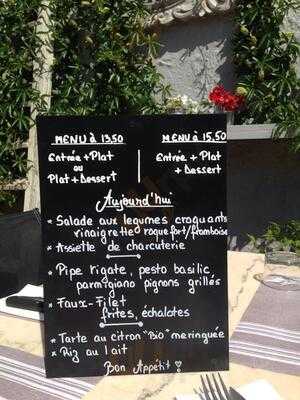 MENU à 13,50
Entrée + Plat
ou
Plat + Dessert
MENU à 15,50
Entrée + Plat
+ Dessert
Aujourd'hui
* Salade aux legumes croquants
vinaigrette roquefort/framboise
* Assiette de charcuterie
* Pipe rigate, pesto basilic
parmigiano pignons grillés
* Faux-Filet
frites, échalotes
* Tarte au citron "Bio" meringuée
* Riz au lait
Bon Appétit !